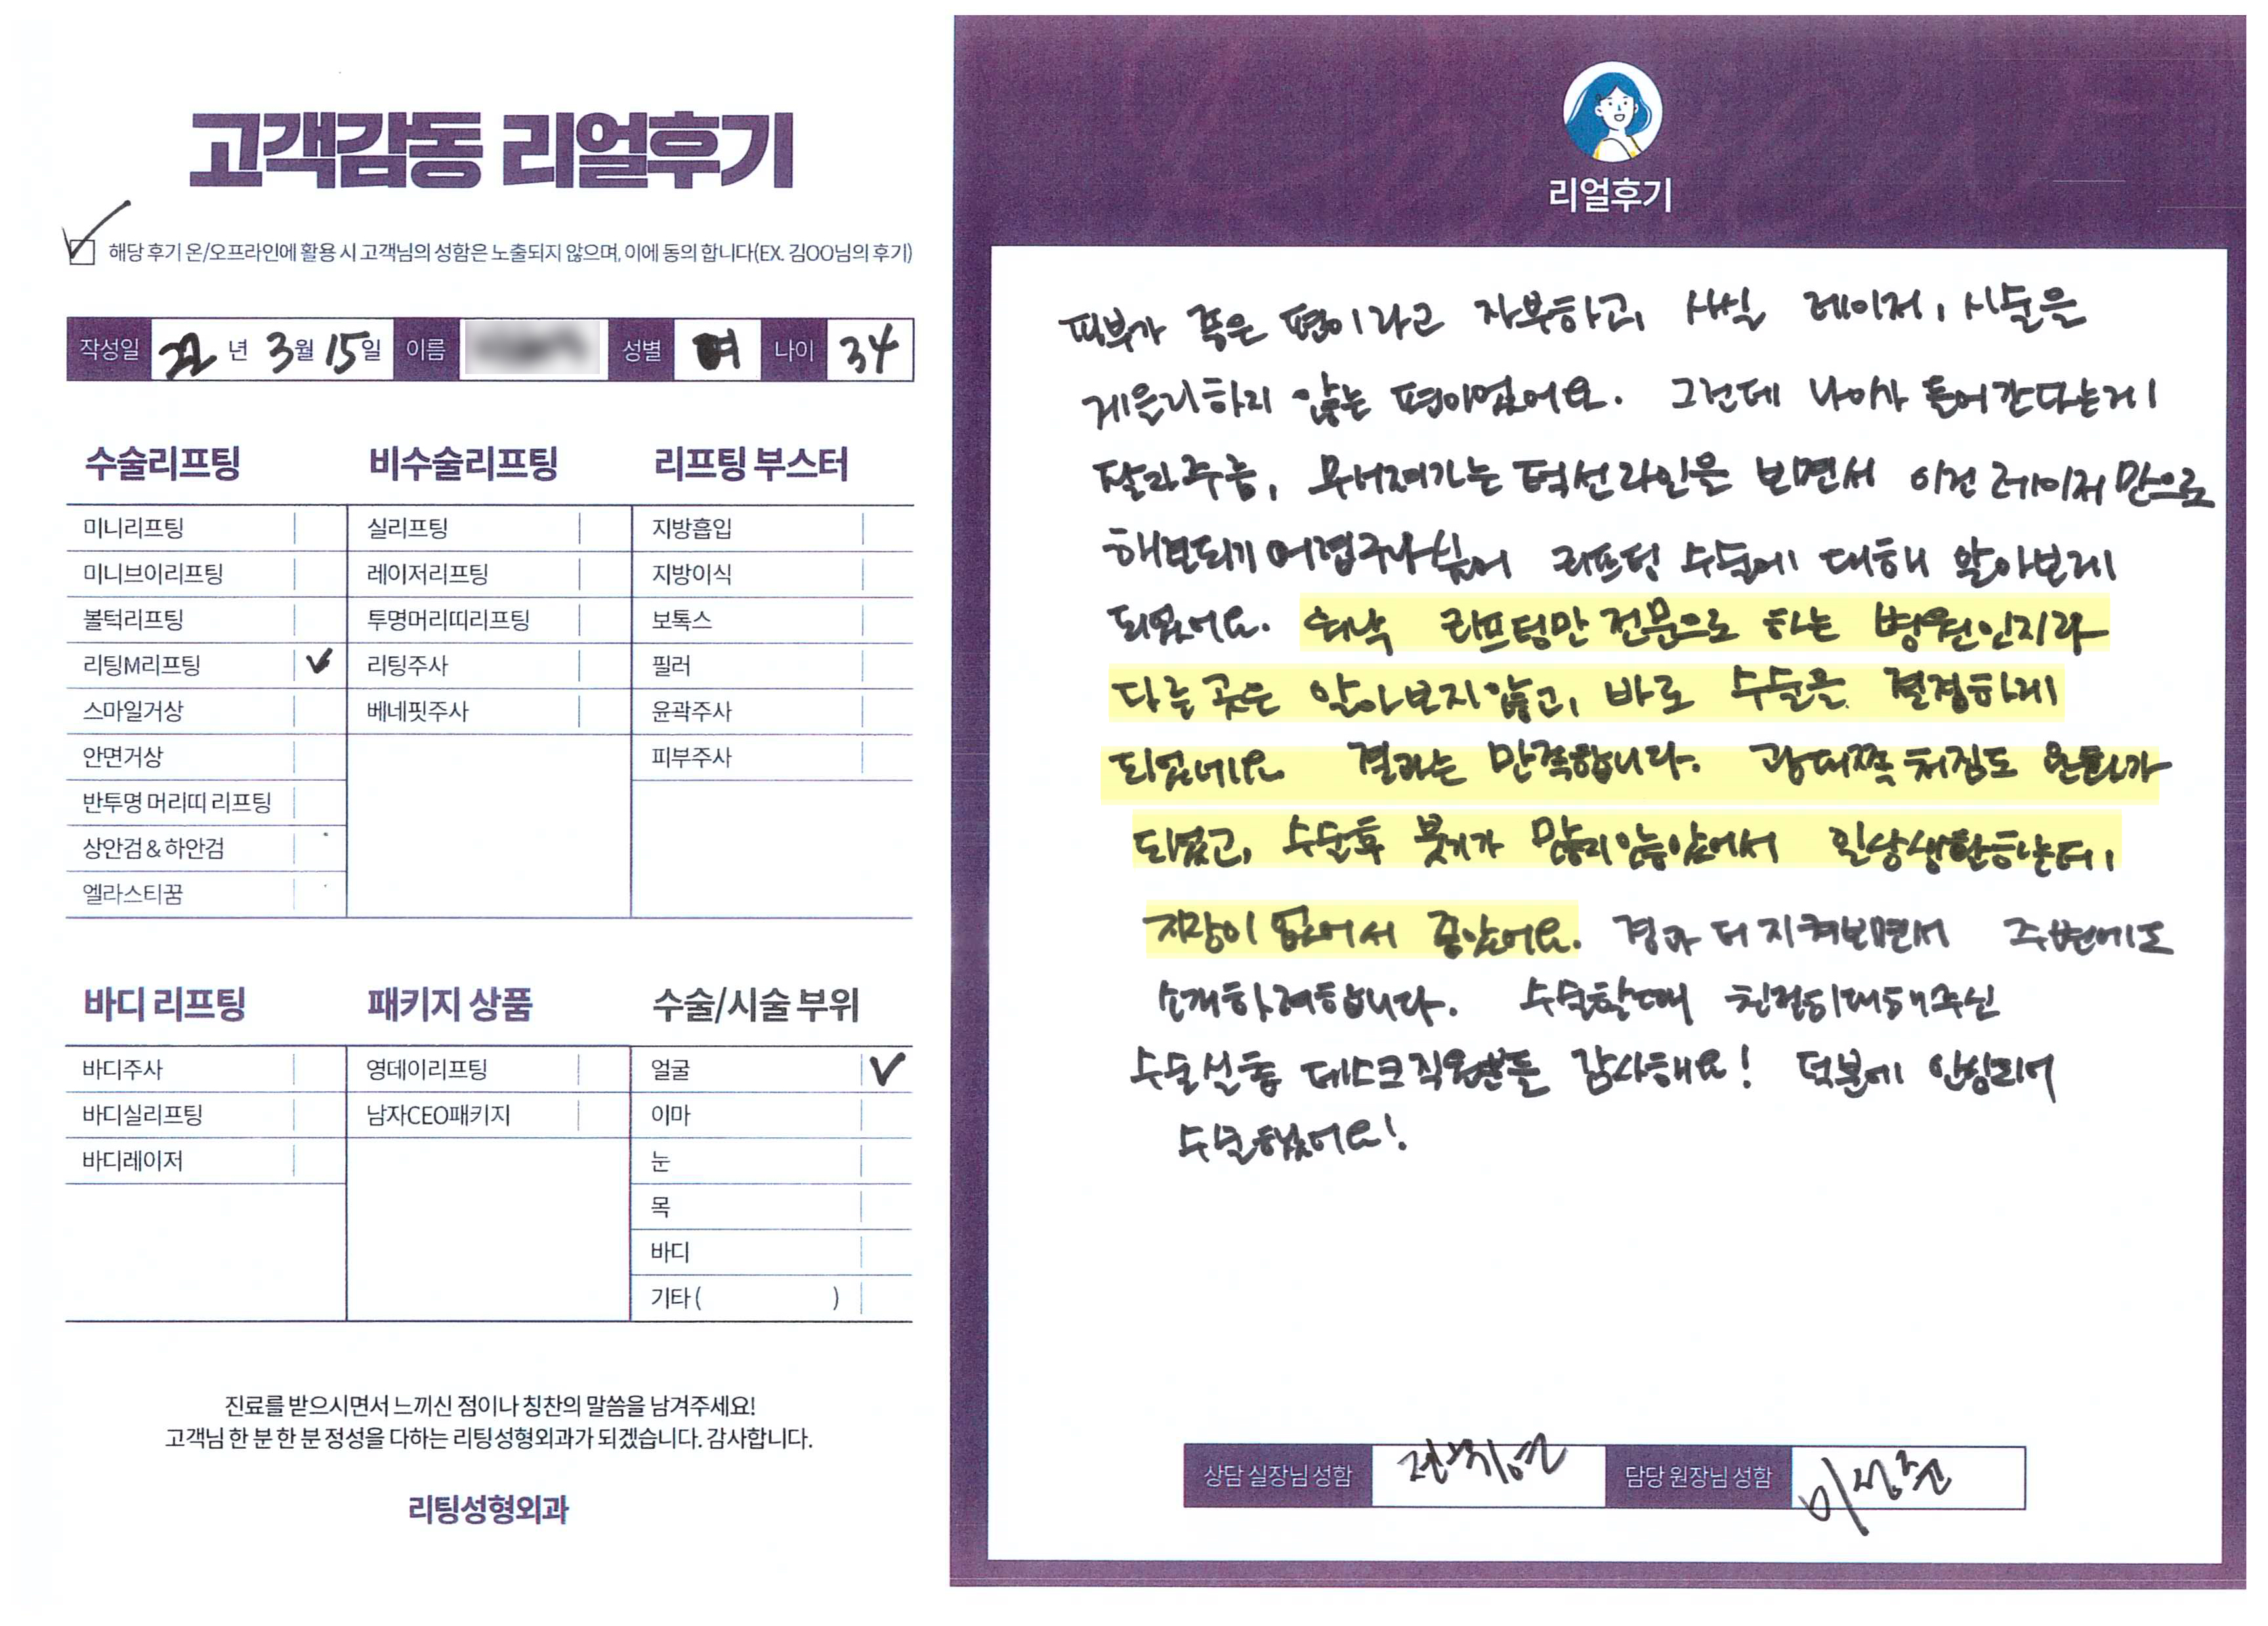 고객감동 리얼후기
해당 후기 온/오프라인에 활용 시 고객님의 성함은 노출되지 않으며, 이에 동의 합니다(EX. 김OO님의 후기)
작성일 22년 3월 15일 이름 성별 여 나이 34
수술리프팅 비수술리프팅 리프팅 부스터
미니리프팅 실리프팅 지방흡입
미니브이리프팅 레이저리프팅 지방이식
볼턱리프팅 투명머리띠리프팅 보톡스
리팅M리프팅 리팅주사 필러
스마일거상 베네핏주사 윤곽주사
안면거상 피부주사
반투명 머리띠 리프팅
상안검&하안검
엘라스티꿈
바디 리프팅 패키지 상품 수술/시술 부위
바디주사 영데이리프팅 얼굴
바디실리프팅 남자CEO패키지 이마
바디레이저 눈
목
바디
기타 ( )
진료를 받으시면서 느끼신 점이나 칭찬의 말씀을 남겨주세요!
고객님 한 분 한 분 정성을 다하는 리팅성형외과가 되겠습니다. 감사합니다.
리팅성형외과
리얼후기
피부가 좋은 편이라고 자부하고, 사실 레이저, 시술을
게을리하지 않는 편이었어요. 그런데 나이가 들어간다는게
팔자주름, 무너져가는 턱선라인을 보면서 이건 레이저 만으로
해결되기 어렵구나 싶어 리프팅 수술에 대해 알아보게
되었어요. 워낙 리프팅만 전문으로 하는 병원인지라
다른 곳은 알아보지않고, 바로 수술을 결정하게
되었네요 결과는 만족합니다. 광대쪽 처짐도 완화가
되었고, 수술후 붓기가 많지않아서 일상생활하는데,
지장이 없어서 좋았어요. 경과 더 지켜보면서 주변에도
소개하려합니다. 수술할때 친절히대해주신
수술실 데스크직원분들 감사해요! 덕분에 안심되어
수술했어요!
상담 실장님 성함 담당 원장님 성함